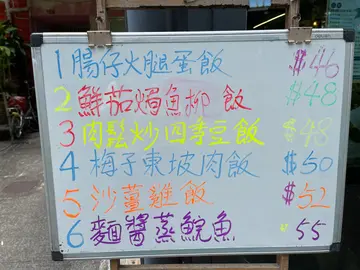 1 腸仔火腿蛋飯 $46
2 鮮茄焗魚柳飯 $48
3 肉鬆炒四季豆飯 $48
4 梅子東坡肉飯 $50
5 沙薑雞飯 $52
6 麵醬蒸鯇魚 55